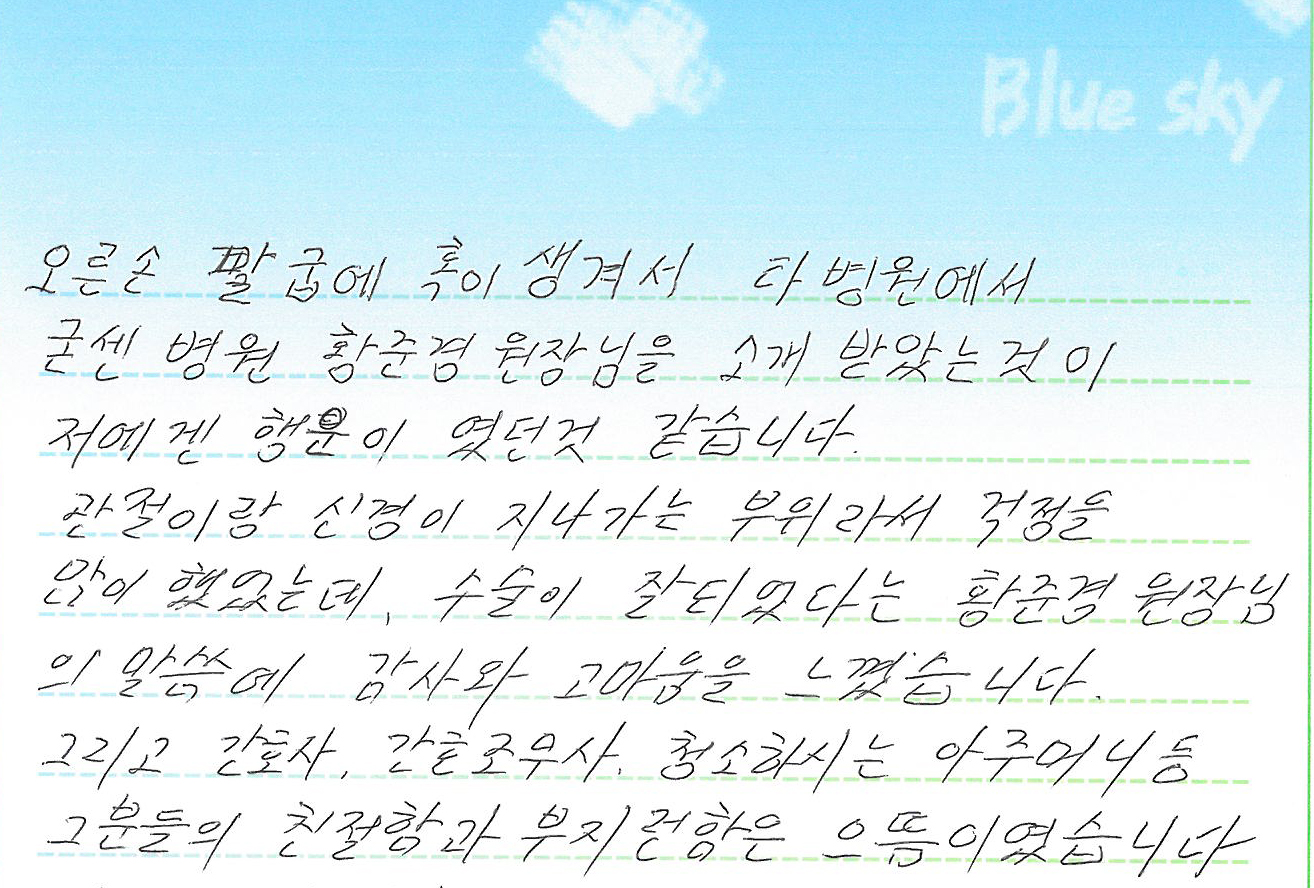 Blue sky
오른손 팔굽에 혹이 생겨서 타 병원에서
굳센 병원 황준경 원장님을 소개 받았는것이
저에겐 행운이 였던것 같습니다.
관절이랑 신경이 지나가는 부위라서 걱정을
많이 했었는데, 수술이 잘되었다는 황준경 원장님
의 말씀에 감사와 고마움을 느꼈습니다.
그리고 간호사, 간호조무사, 청소하시는 아주머니등
그분들의 친절함과 부지런함은 으뜸이였습니다